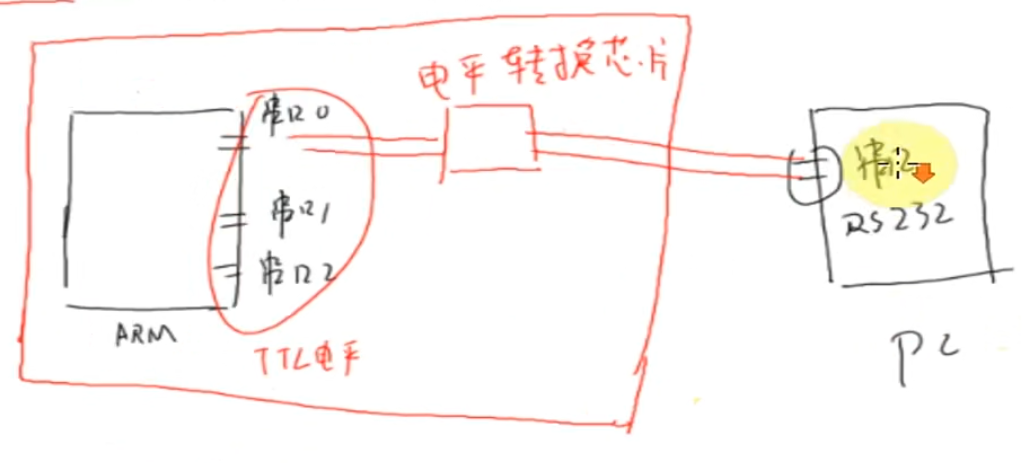 电平转换芯片
串口0
串口1
串口2
ARM
TTL电平
串口
RS232
PC